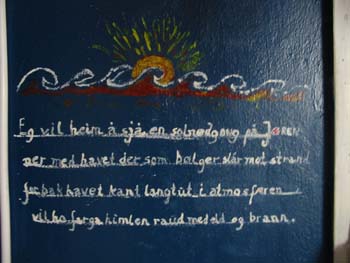 Eg vil heim å sjå en solnedgong på JÆREN
ner med havet der som bølger slår mot strand
for bak havet kant langt ut i atmosfæren
vil ho farga himlen raud med eld og brann.